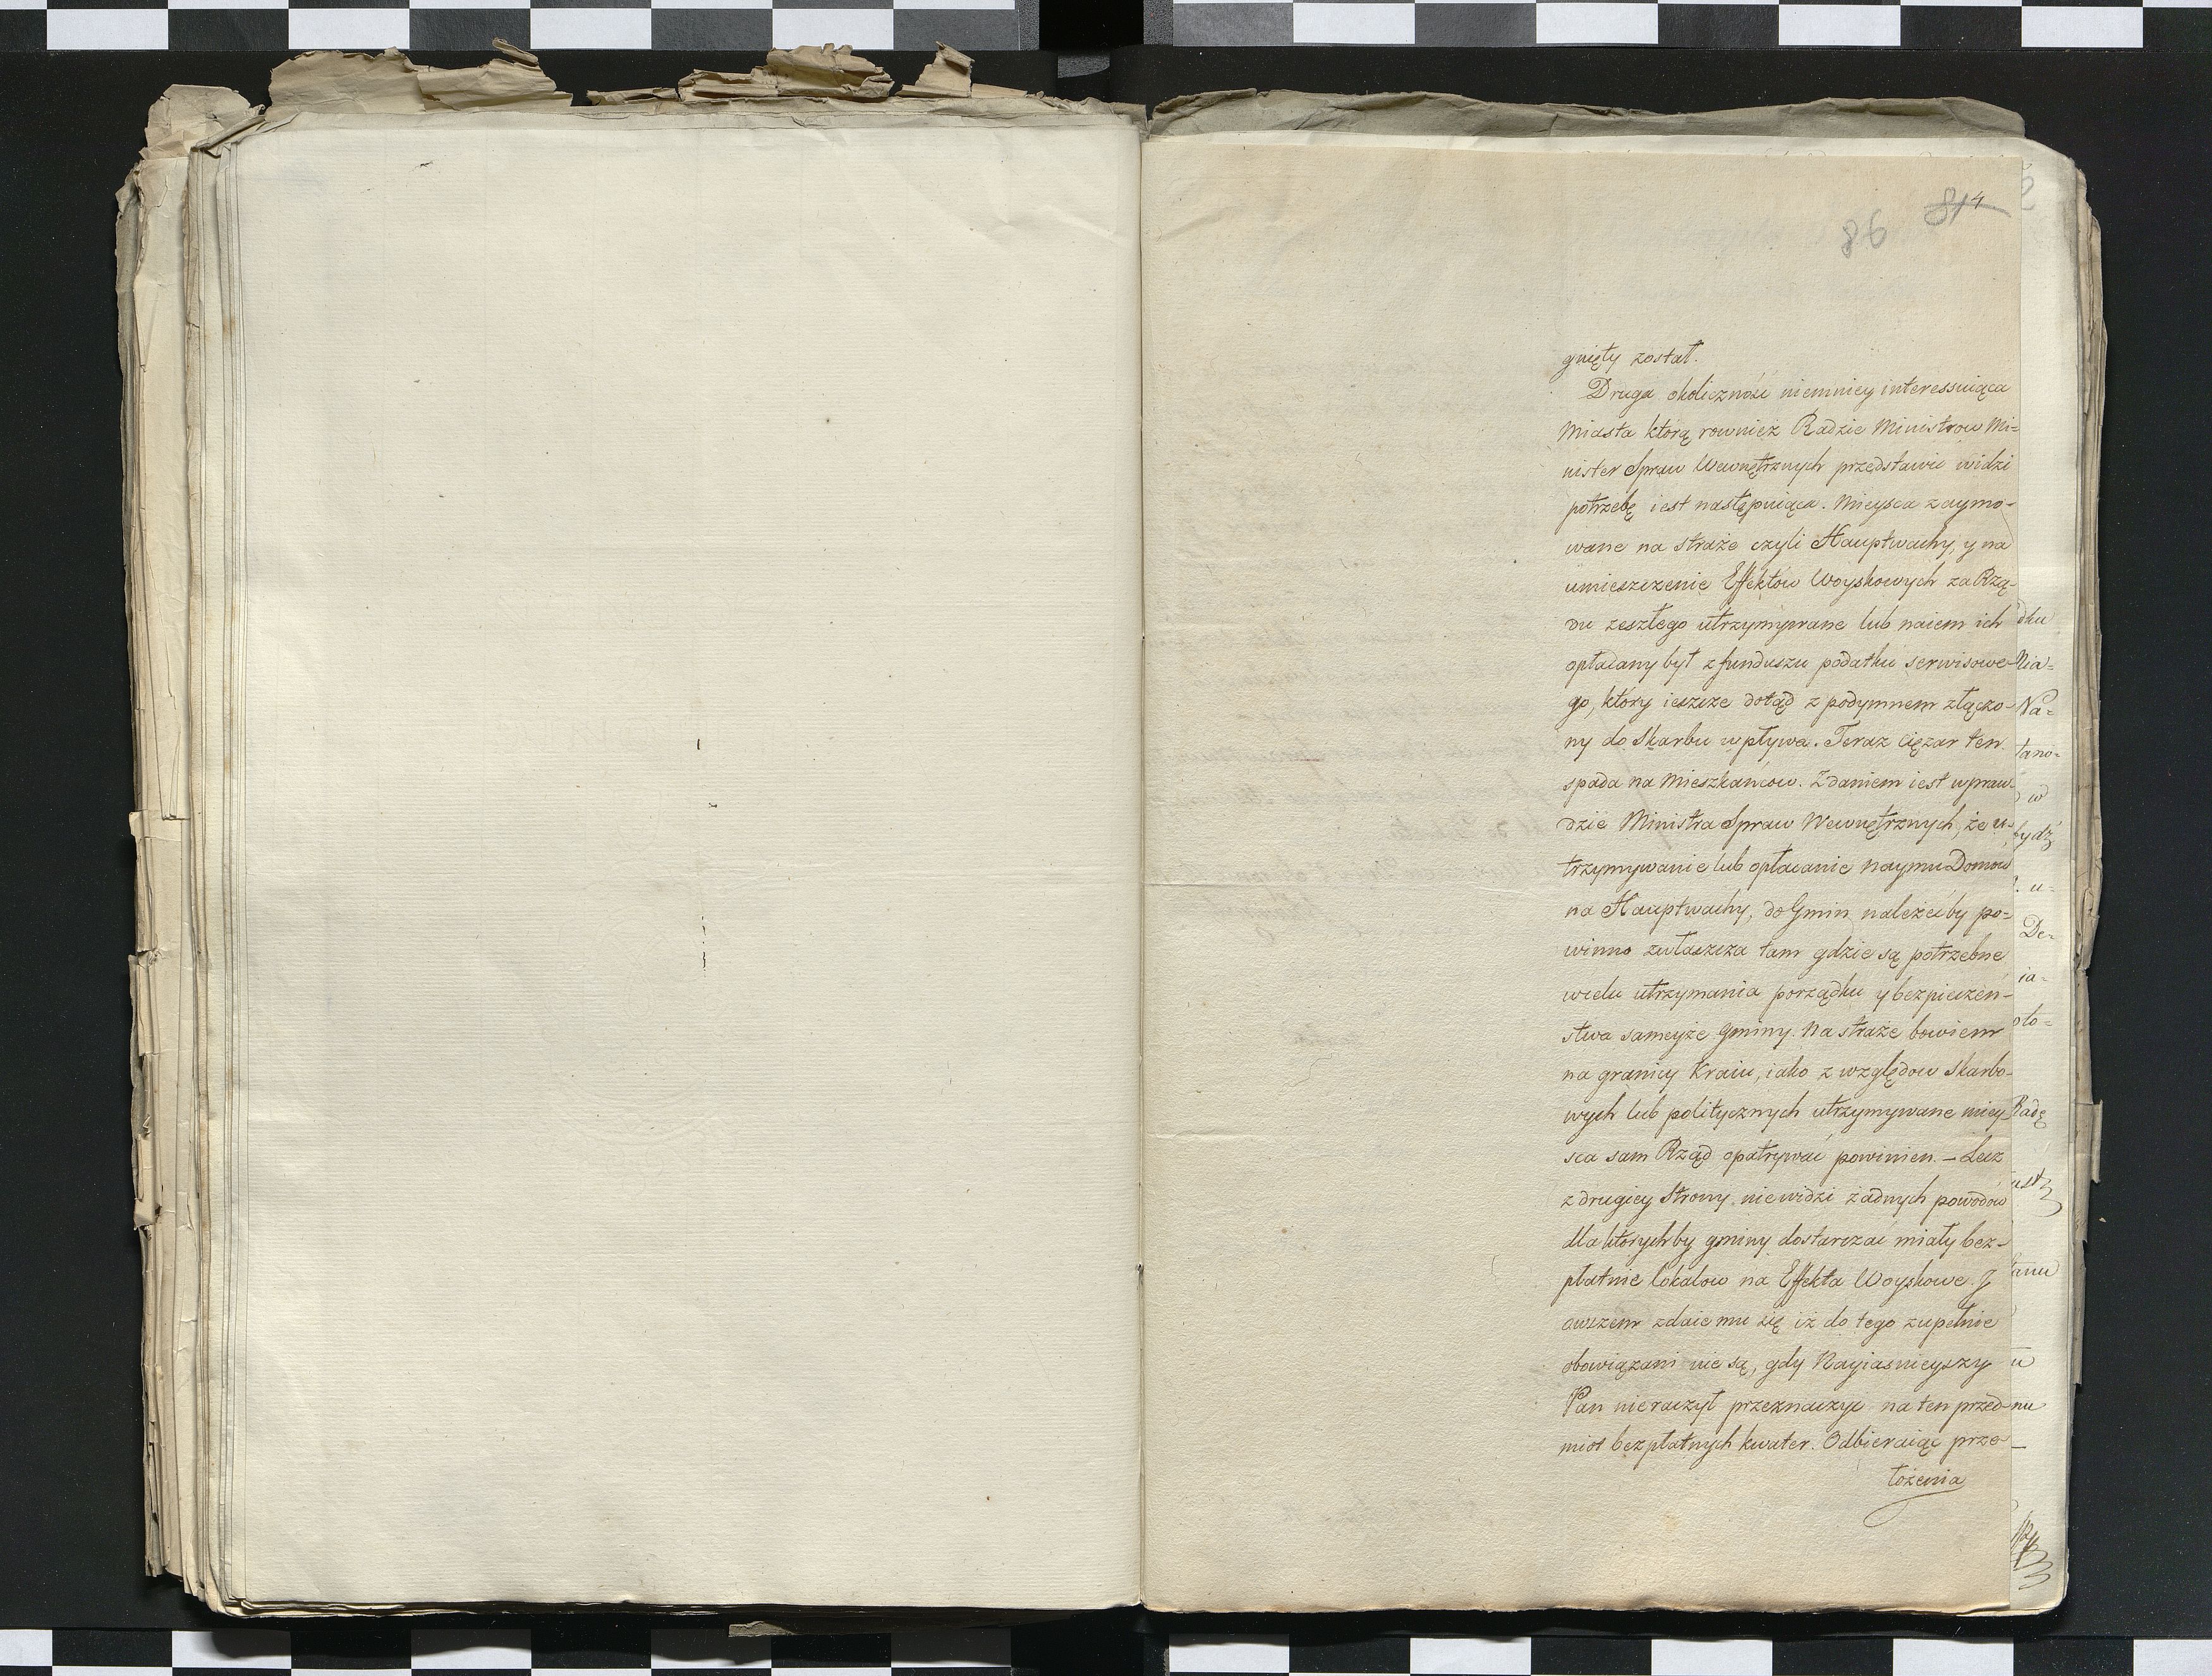 814
86
gnięty został.
Druga okoliczność niemniey interessuiąca
Miasta którą rownież Radzie Ministrow Mi=
nister Spraw Wewnętrznych przedstawić widzi
potrzebę iest następuiąca. Mieysca zaymo-
wane na straże czyli Hauptwachy, y na
umieszczenie Effektów Woyskowych za Rzą-
du zeszłego utrzymywane lub naiem ich
opłacany był z funduszu podatku serwisowe-
go, który ieszcze dotąd z podymnem złączo-
ny do Skarbu wpływa. Teraz ciężar ten
spada na Mieszkańcow. Zdaniem iest wpraw-
dzie Ministra Spraw Wewnętrznych, że u-
trzymywanie lub opłacanie Naymu Domów
na Hauptwachy, do Gmin należećby po=
winno zwłaszcza tam gdzie są potrzebne
wcelu utrzymania porządku y bezpieczeń-
stwa sameyże Gminy. Na straże bowiem
na granicy Kraiu, iako z względow Skarbo-
wych lub politycznych utrzymywane miey-
sca sam Rząd opatrywać powinien. – Lecz
z drugiey Strony niewidzi żadnych powodów
dla którychby gminy dostarczać miały bez-
płatnie lokalow na Effekta Woyskowe. J
owszem zdaie mu się iż do tego zupełnie
obowiązani nie są, gdy Nayiasnieyszy
Pan nieraczył przeznaczyć na ten przed-
miot bezpłatnych kwater. Odbieraiąc prze-
łożenia
dku
Nia=
Na=
tano=
w
bydź
u=
De-
ia-
oto=
Radę